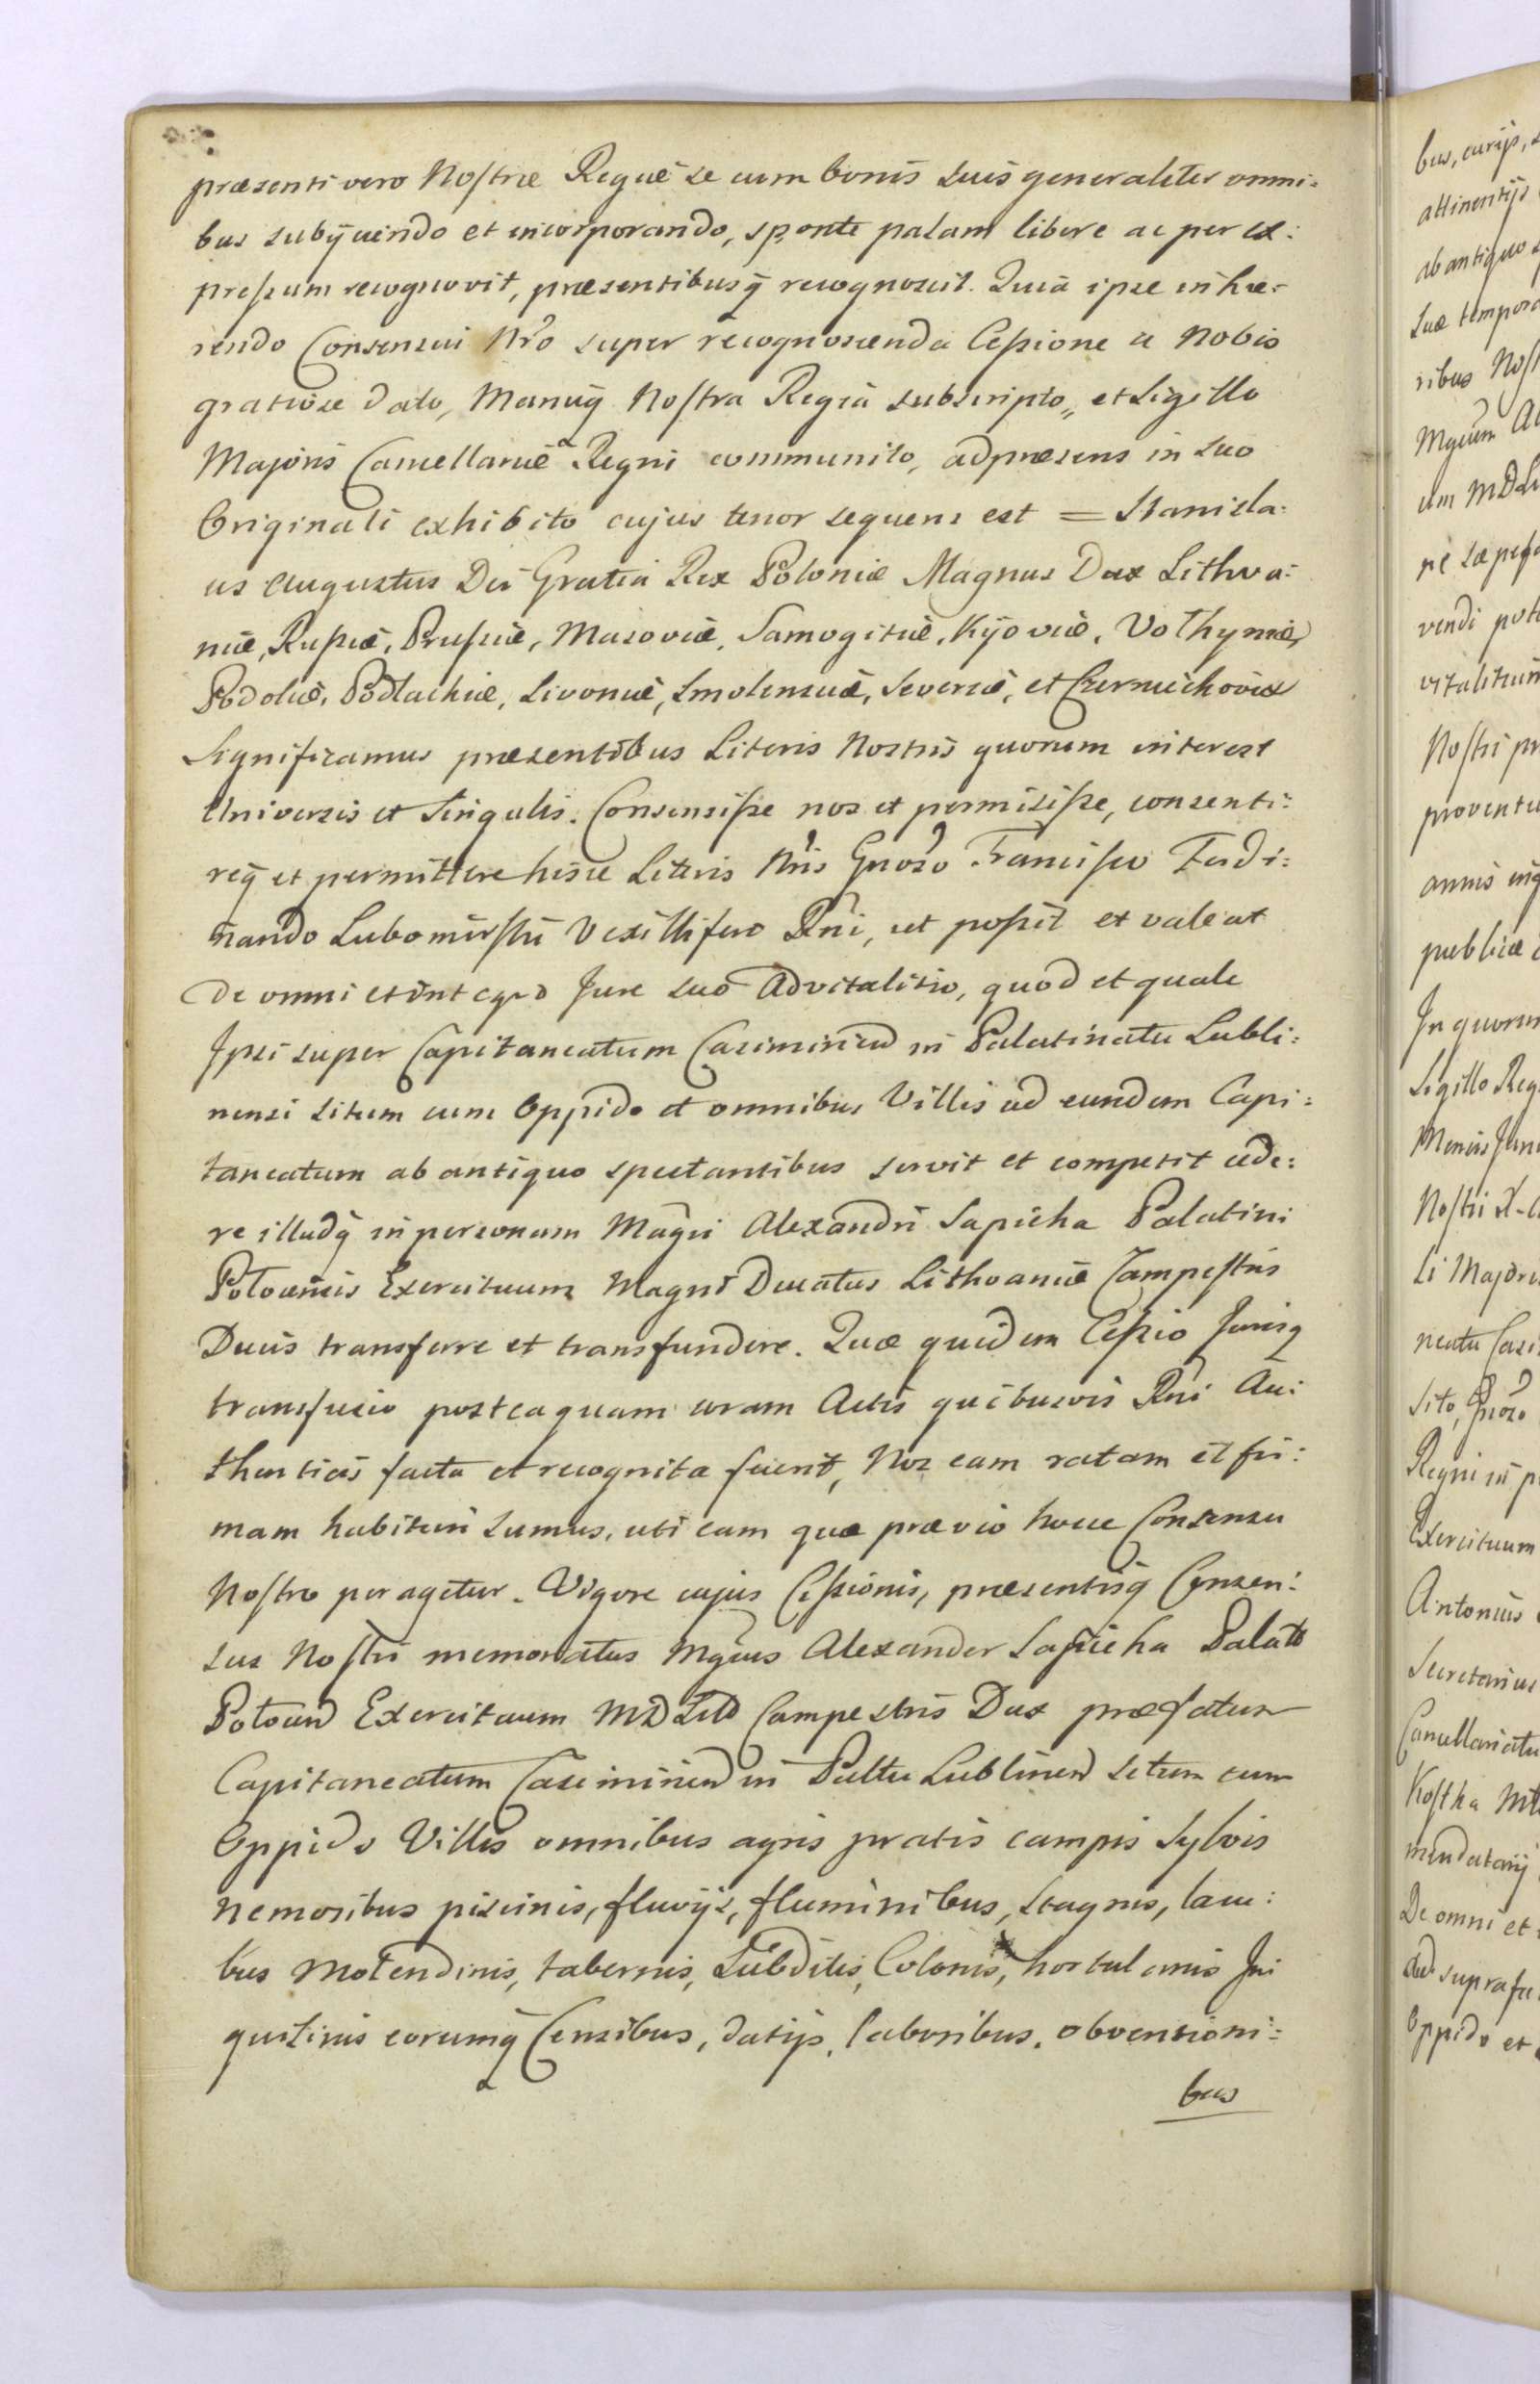 præsenti vero Nostræ Regiæ se cum bonis suis generaliter omni=
bus subijciendo et incorporando, sponte palam libere ac per ex=
pressum recognovit, præsentibusq̃ recognoscit. Quia ipse inhæ=
rendo Consensui Nr̃o super recognoscenda Cessione a Nobis
gratiose dato, Manuq̃ Nostra Regia subscripto, et Sigillo
Majoris Cancellariæ Regni communito, ad præsens in suo
Originali exhibito cujus tenor sequens est = Stanisla=
us Augustus Dei Gratia Rex Poloniæ Magnus Dux Lithva=
niæ, Russiæ, Prussiæ, Masoviæ, Samogitiæ, Kijoviæ, Volhyniæ,
Podoliæ, Podlachiæ, Livoniæ, Smolensciæ, Severiæ, et Czerniechoviæ
Significamus præsentibus Literis Nostris quorum interest
Universis et Singulis. Consensisse nos et permisisse, consenti=
req̃ et permittere hisce Literis Nr̃is Gnoso Francisco Ferdi=
nando Lubomirski Vexillifero Rñi, ut possit et valeat
De omni et integro Jure suo Advitalitio, quod et quale
Ipsi super Capitaneatum Casimirien in Palatinatu Lubli=
nensi situm cum Oppido et omnibus Villis ad eundem Capi=
taneatum ab antiquo spectantibus servit et competit cede=
re illudq̃ in personam Mag̃ci Alexandri Sapieha Palatini
Polocensis Exercituum Magni Ducatus Lithvaniæ Campestris
Ducis transferre et transfundere. Quæ quidem Cessio Jurisq
transfusio posteaquam coram Actis quibusvis Rñi Au=
thenticis facta et recognita fuerit, Nos eam ratam et fir=
mam habituri sumus, uti eam quæ prævio hocce Consensu
Nostro peragetur. Vigore cujus Cessionis, præsentisq̃ Consen=
sus Nostri memoratus Mgcus Alexander Sapieha Palat
Polocen Exercituum MDLit Campestris Dux præfatum
Capitaneatum Casimirien in Palttu Lublinen situm cum
Oppido Villis omnibus agris pratis campis Sylvis
nemoribus piscinis, fluvijs, fluminibus, stagnis, lacu=
bus Molendinis, tabernis, Subditis, Colonis, hortulanis In
quilinis eorumq̃ Censibus, datijs, laboribus, obventioni=
bus